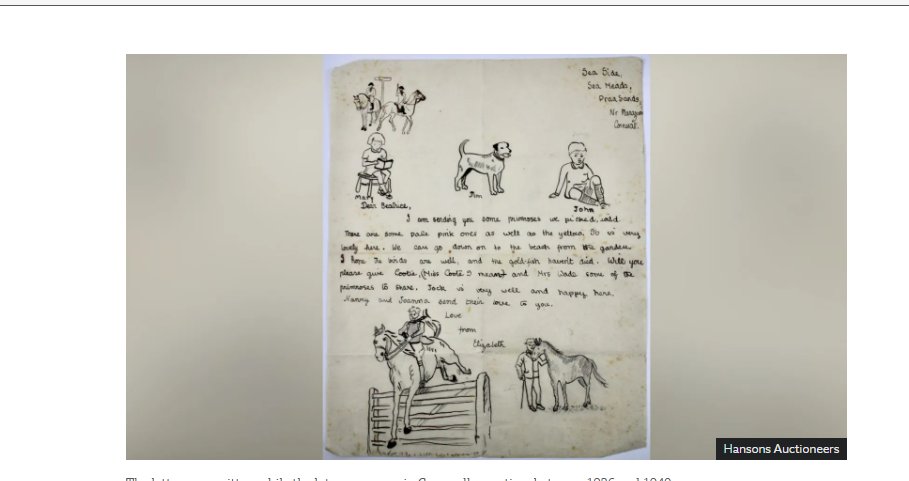 Sea Side,
Sea Meads,
Praa Sands,
Nr
Cornwall.
Mary
Jim
John
Dear Beatrice,
I am sending you some primroses we picked,
There are some pale pink ones as well as the yellow. It is very
lovely here. We can go down on to the beach from the garden.
I hope the birds are well, and the gold-fish haven't died. Will you
please give Cootie, (Miss Coote I mean) and Mrs Wade some of the
primroses to share. Jock is very well and happy here.
Nanny and Joanna send their love to you.
Love
from
Elizabeth
Hansons Auctioneers